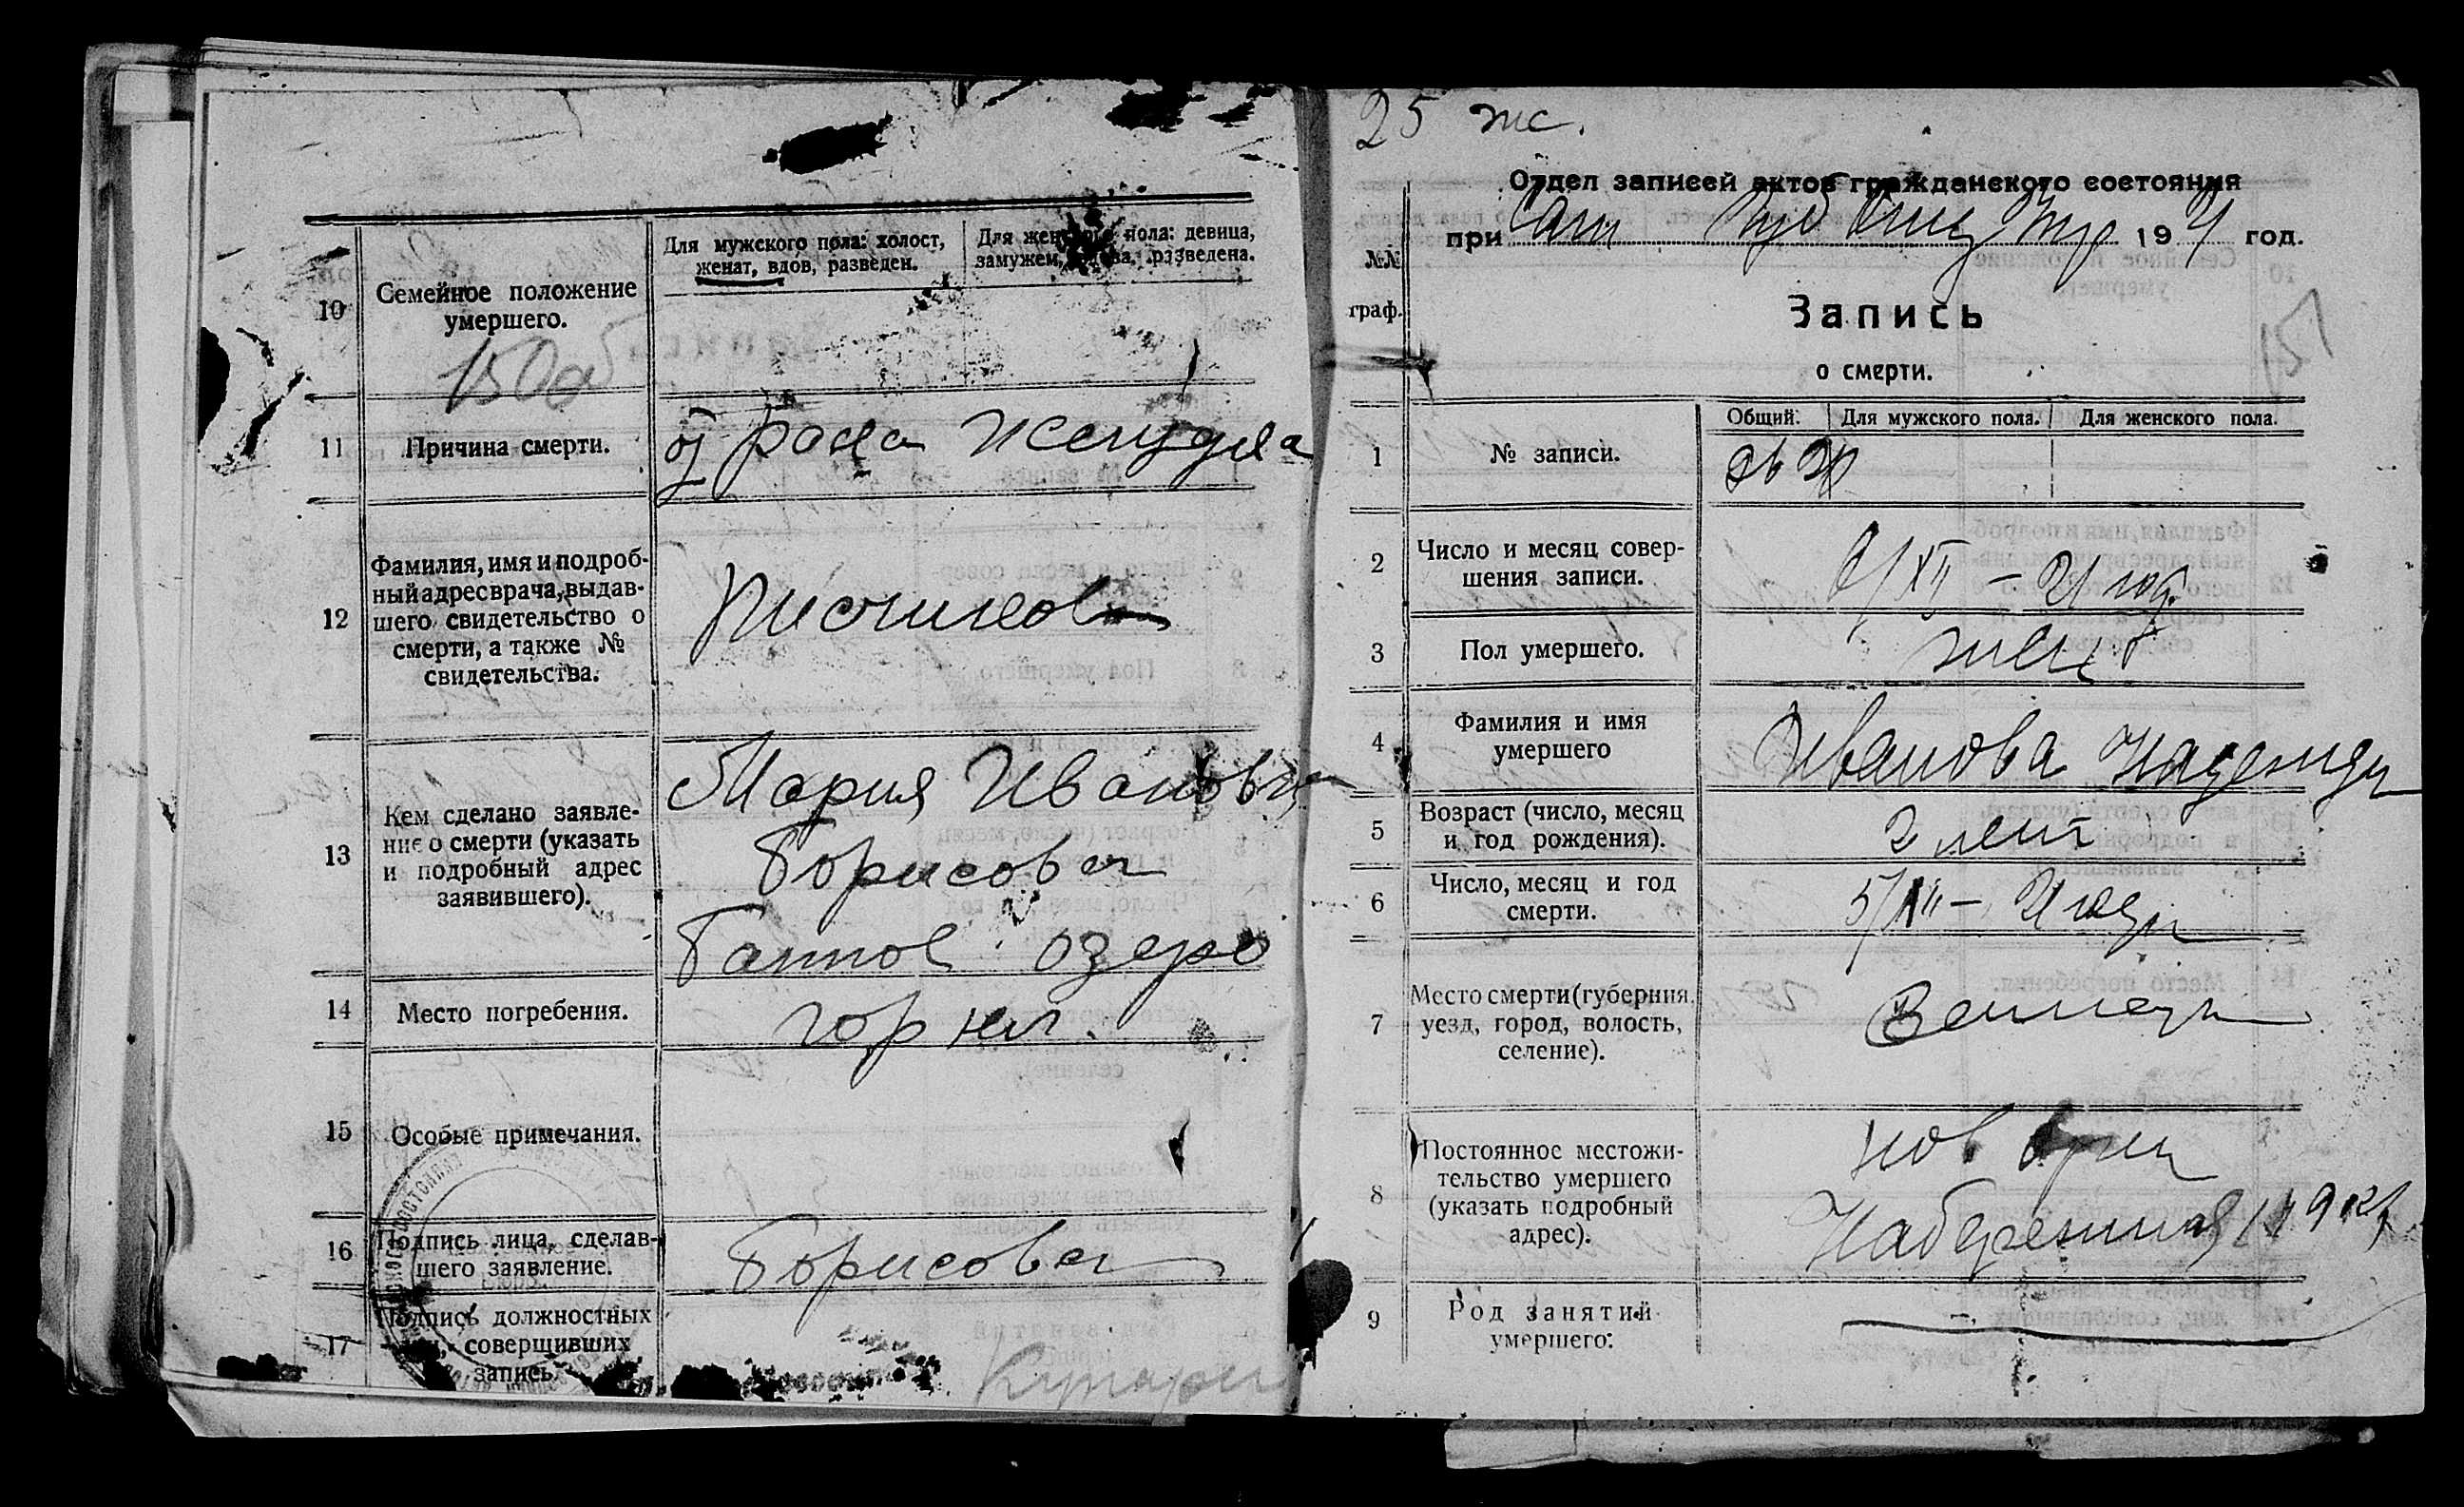 10
Семейное положение
умершего.
Для мужского пола: холост,
женат, вдов, разведен.
Для женского пола: девица,
замужем, вдова, разведена.
150об
11
Причина смерти.
от рака желудка
12
Фамилия, имя и подроб-
ный адрес врача, выдав-
шего свидетельство о
смерти, а также №
свидетельства.
13
Кем сделано заявле-
ние о смерти (указать
и подробный адрес
заявившего).
Мария Ивановна
Борисова
озеро
14
Место погребения.
гор кл.
15
Особые примечания.
16
Подпись лица, сделав-
шего заявление.
Борисова
17
Подпись должностных
лиц, совершивших
запись.
25 ж.
Отдел записей актов гражданского состояния
при 19 21 год.
151
№№
граф.
Запись
о смерти.
1
№ записи.
Общий.
Для мужского пола.
Для женского пола.
2
Число и месяц совер-
шения записи.
6/XII – 21 год.
3
Пол умершего.
жен
4
Фамилия и имя
умершего
Иванова Надежда
5
Возраст (число, месяц
и год рождения).
2 лет
6
Число, месяц и год
смерти.
5/XII – 21 года
7
Место смерти (губерния,
уезд, город, волость,
селение).
8
Постоянное местожи-
тельство умершего
(указать подробный
адрес).
нов
Набережная 119 кв
9
Род занятий
умершего:
–